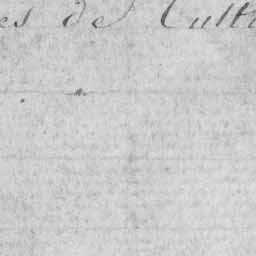 es de Cult